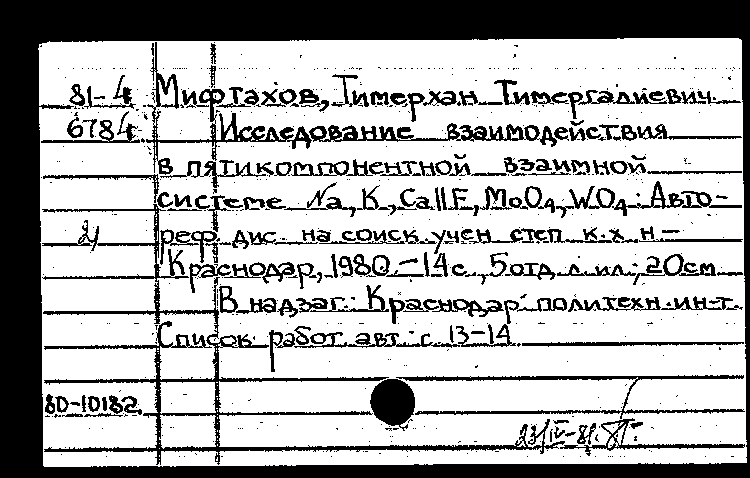 81-4 Мифтахов, Тимерхан Тимергалиевич
6784 Исследование взаимодействия
в пятикомпонентной взаимной
системе Na, K, Ca||F, MoO4, WO4: Авто-
2) реф. дис. на соиск. учен. степ. к. х. н.-
Краснодар, 1980.-14с., 5 отд. л. ил.; 20см
В надзаг.: Краснодар. политехн. ин-т.
Список работ авт.: с. 13-14
80-10182
23/IV-81.